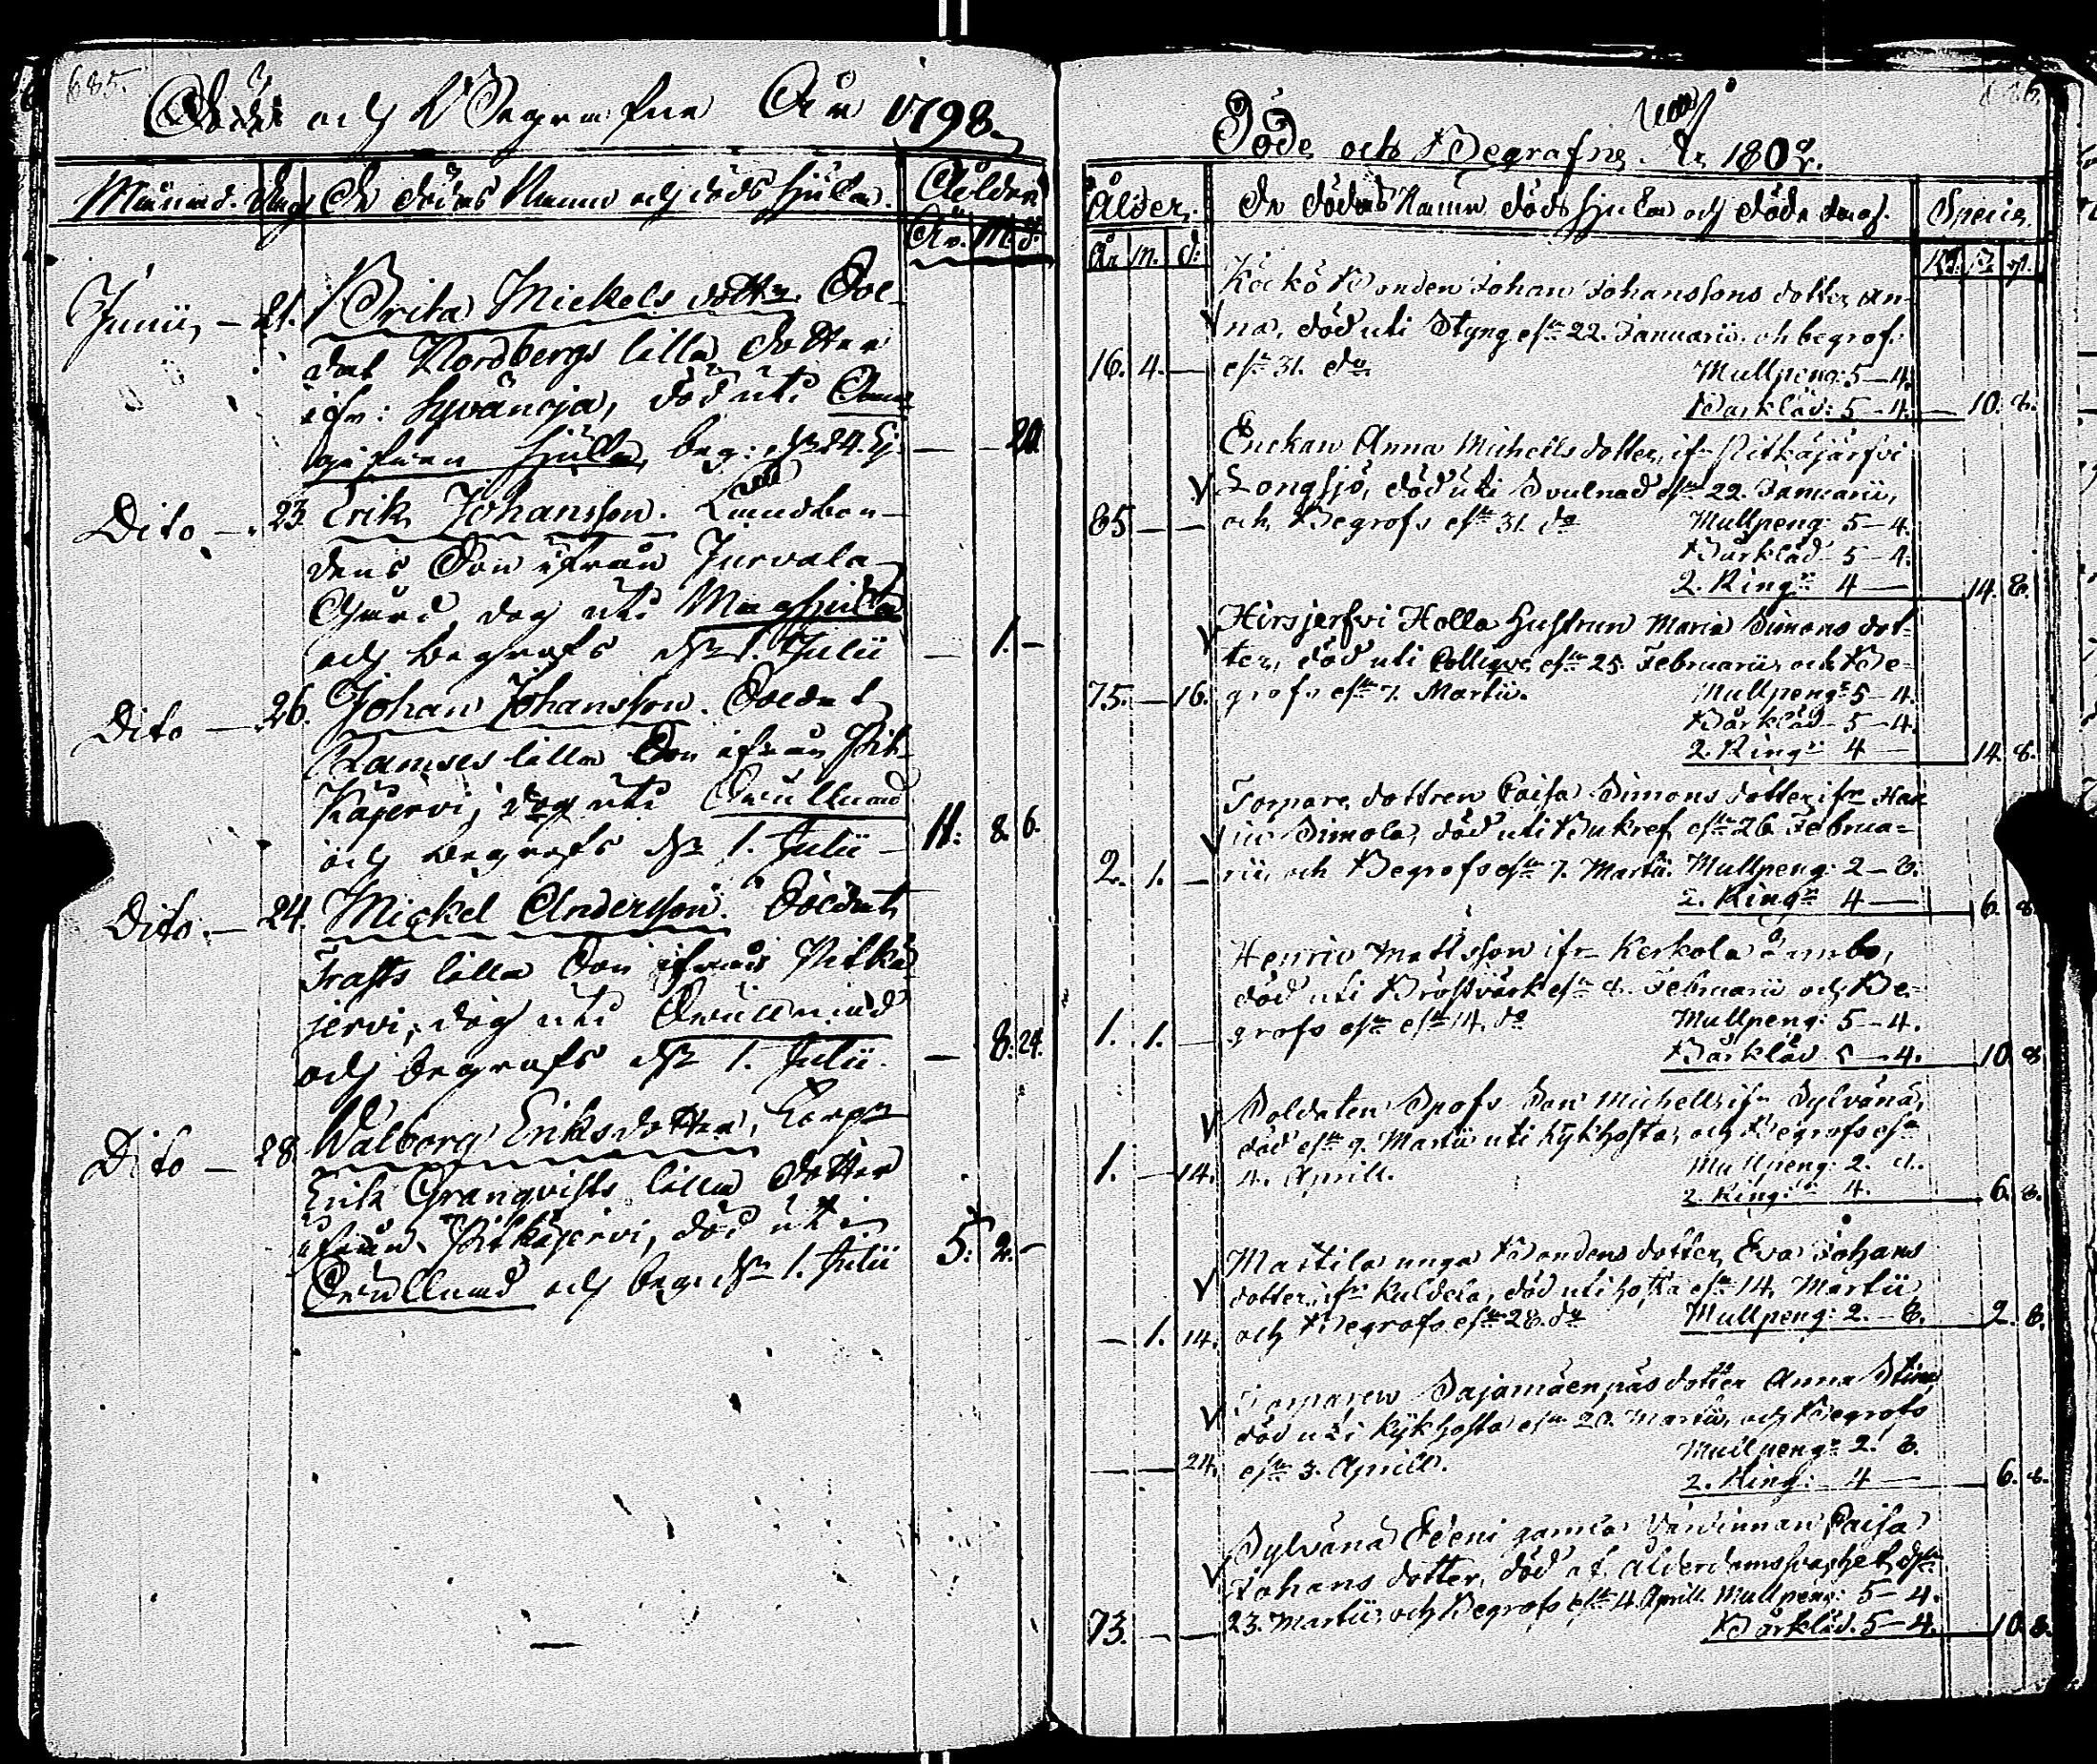 685.
Döde och Begrafne År 1798.
Månad. Dag De dödas Namn och döds sjukd. Ålder
År. M. d.
Junii, — 21. Brita Mickels dottr. Sol-
dat Nordbergs lilla dotter
ifr: Syvänoja, död uti Oan-
gifven sjukd, beg: dn 24. Ej. — — 20.
Dito — 23. Erik Johansson. Landbon-
dens Son ifrån Jurvala
dog uti Magsjuka
och begrofs dn 1. Julii — 1. —
Dito — 26. Johan Johansson. Soldat
Ramses lilla Son ifrån Pit-
käjervi, dog uti Svullnad
och begrofs dn 1. Julii — 11. 8. 6.
Dito. — 24. Mickel Andersson. Soldat
Trasts lilla Son ifrån Pitkä
jervi, dog uti Svullnad
och begrofs dn 1. Julii. — 8. 24.
Dito — 28 Walborg Eriksdotter, Corpr
Erik Granqvists lilla dotter
ifrån Pitkäjervi, död uti
Svullnad och beg: dn 1. Julii 5. 2. —
Döde och Begrafne. År 1802.
Ålder. De dödas Namn döds sjukd och döde dag. Specie
År m. d. Rd.
Köckö Bonden Johan Johanssons dotter An-
na, död uti Styng dn 22. Januarii. och begrof.
16. 4. — dn 31. do. Mullpeng: 5—4.
Bårkläd: 5—4. — 10. 8.
Enckan Anna Michells dotter, ifr Pitkäjärfvi
Långsjö, död uti Svulnad dn 22. Januarii,
85 — — och Begrofs dn 31. do Mullpeng: 5—4.
Bårkläd 5—4.
2. Ringr 4 — 14. 8.
Hirsjerfvi Holla hustrun Maria Simons dot-
ter, död uti Collique dn 25. Februarii, och Be-
75. — 16. grofs dn 7. Martii. Mullpengr 5—4.
Bårkläd 5—4.
2. Ringr 4 — 14. 8.
Torpare dottren Caisa Simons dotter, ifr
Simola, död uti dn 26. Februa-
2. 1. — rii, och Begrofs dn 7. Martii. Mullpeng: 2—8.
2. Ringr 4 — 6. 8.
Henric Mattsson ifr Kerkola
död uti Bröstvärk dn 4. Februarii och Be-
1. 1. — grofs dn dn 14. do Mullpeng: 5—4.
Bårkläd 5—4. 10. 8
Soldaten Spofs Son Michell, ifr Sylvänä,
död dn 9. Martii uti Kykhosta, och Begrofs dn
1. — 14. 4. Aprill. Mullpeng: 2.
2. Ring: 4. 6. 8.
Martila unga Bondens dotter, Eva Johans
dotter, ifr Kuldela, död uti hosta dn 14. Martii,
— 1. 14. och Begrofs dn 28. do Mullpeng: 2.—8. 2. 8.
Torparen Sajamäenpäs dotter Anna Stina
död uti Kykhosta dn 20. Martii, och Begrofs
— — 24. dn 3. Aprill. Mullpengr 2. 8.
2. Ring: 4 — 6. 8.
Sylvänä Eeeni gamla Värdinnan Caisa
Johans dotter, död af ålderdomsvaghet, dn
23. Martii, och Begrofs dn 4. Aprill. Mullpeng: 5—4.
73. — — Bårkläd. 5—4. 10. 8.